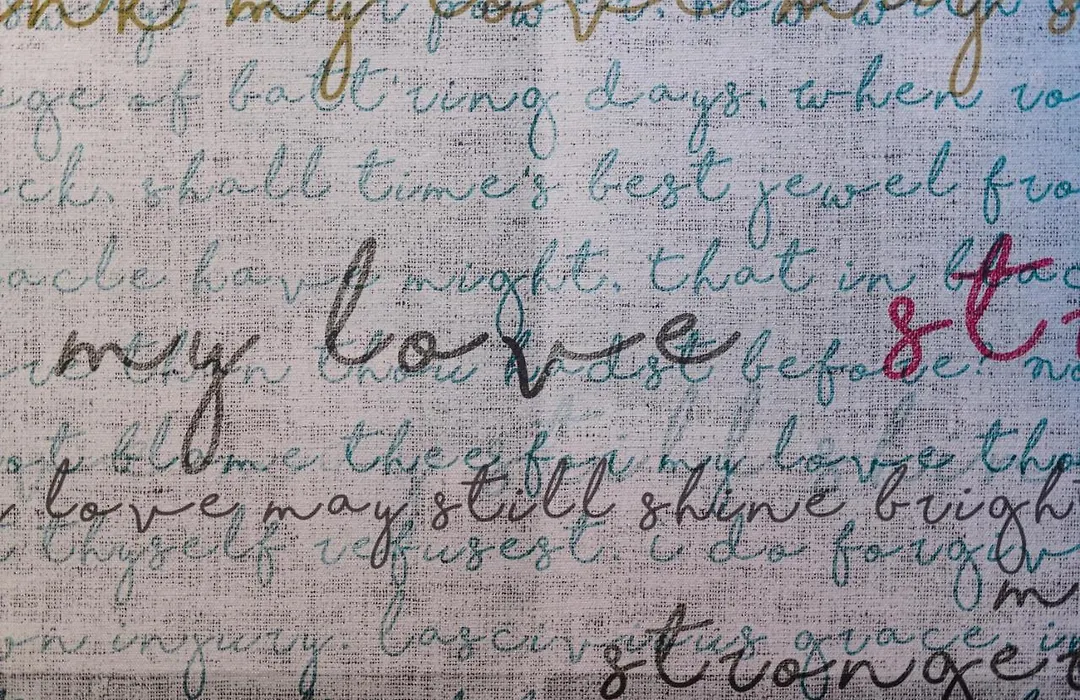 ink my love
ege of batt'ring days. when ro
ck, shall time's best jewel fro
acle have might. that in blac
my love st
ve then thou hadst before. no
ot blame thee for my love tho
love may still shine bright
thyself refusest. i do forgiv
m
on injury. lascivious grace, in
stronger